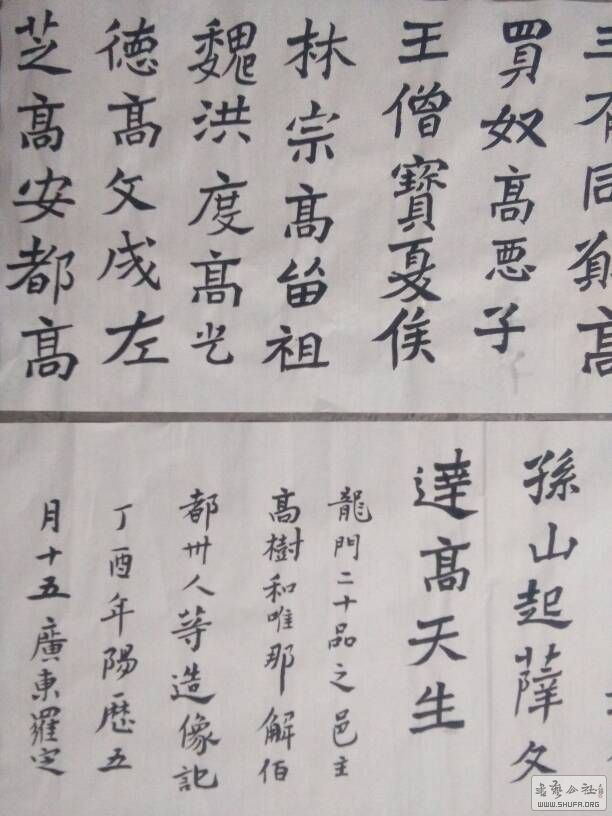 三有同願高
買奴高惡子
王僧寶夏侯
林宗高留祖
魏洪度高
德高文成左
芝高安都高
孫山起薛文
達高天生
龍門二十品之邑主
高樹和唯那解伯
都卅人等造像記
丁酉年陽曆五
月十五廣東羅定
書藝公社
WWW.SHUFA.ORG